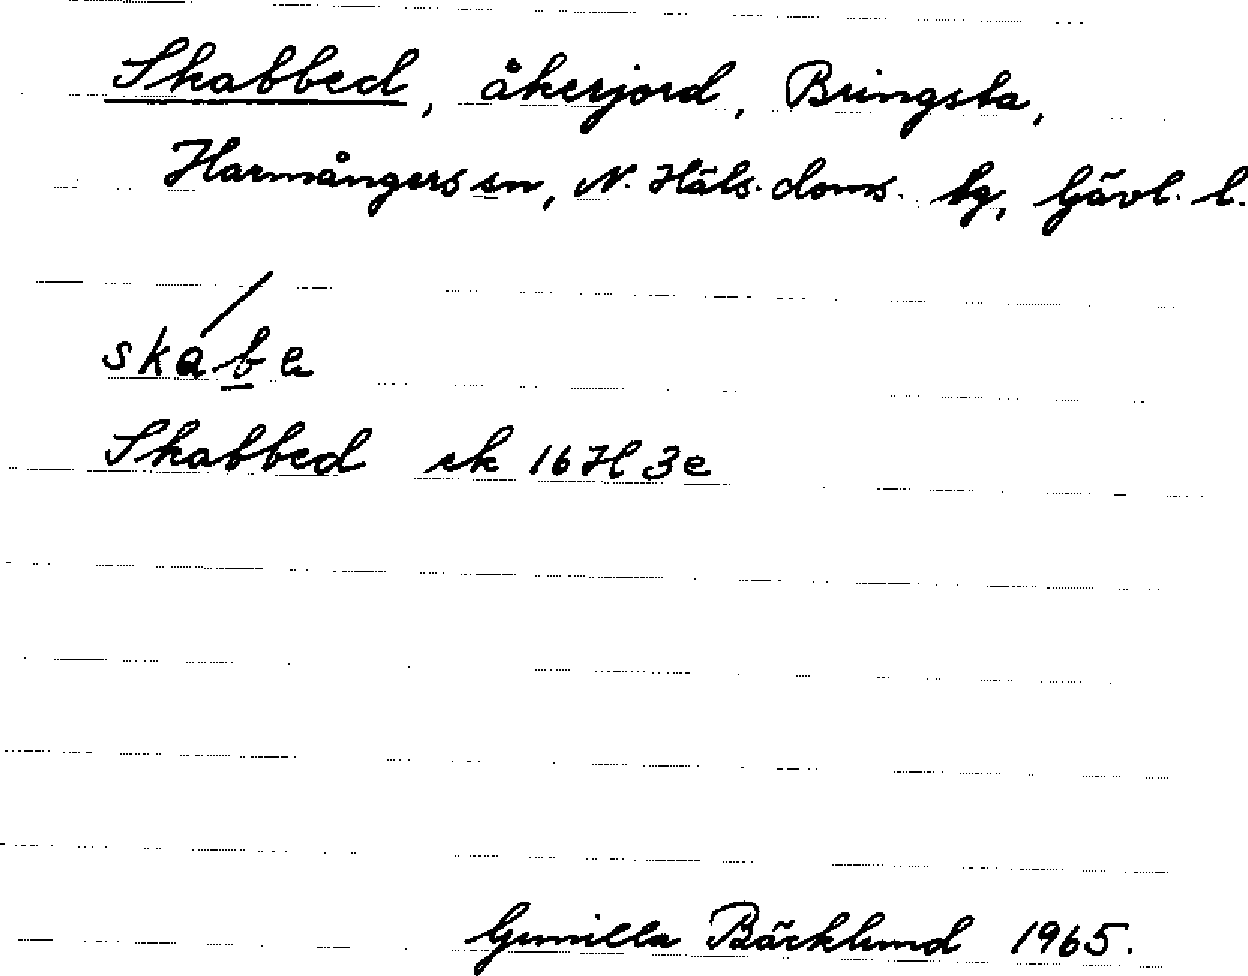 Skabbed, åkerjord, Bringsta,
Harmångers sn, N. Häls. doms. tg, Gävl. l.
skabe
Skabbed ek 16H3e
Gunilla Bäcklund 1965.